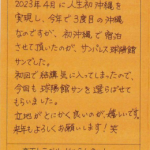 2023年4月に人生初沖縄を
実現し、今年で3度目の沖縄
なのですが、初沖縄で宿泊
させて頂いたのが、サンパレス球陽館
サンでした。
初回で結構気に入ってしまったので、
今回も球陽館サンを選らばせて
もらいました。
立地がとにかく良いのが、嬉しいです。
来年もよろしくお願いします！笑